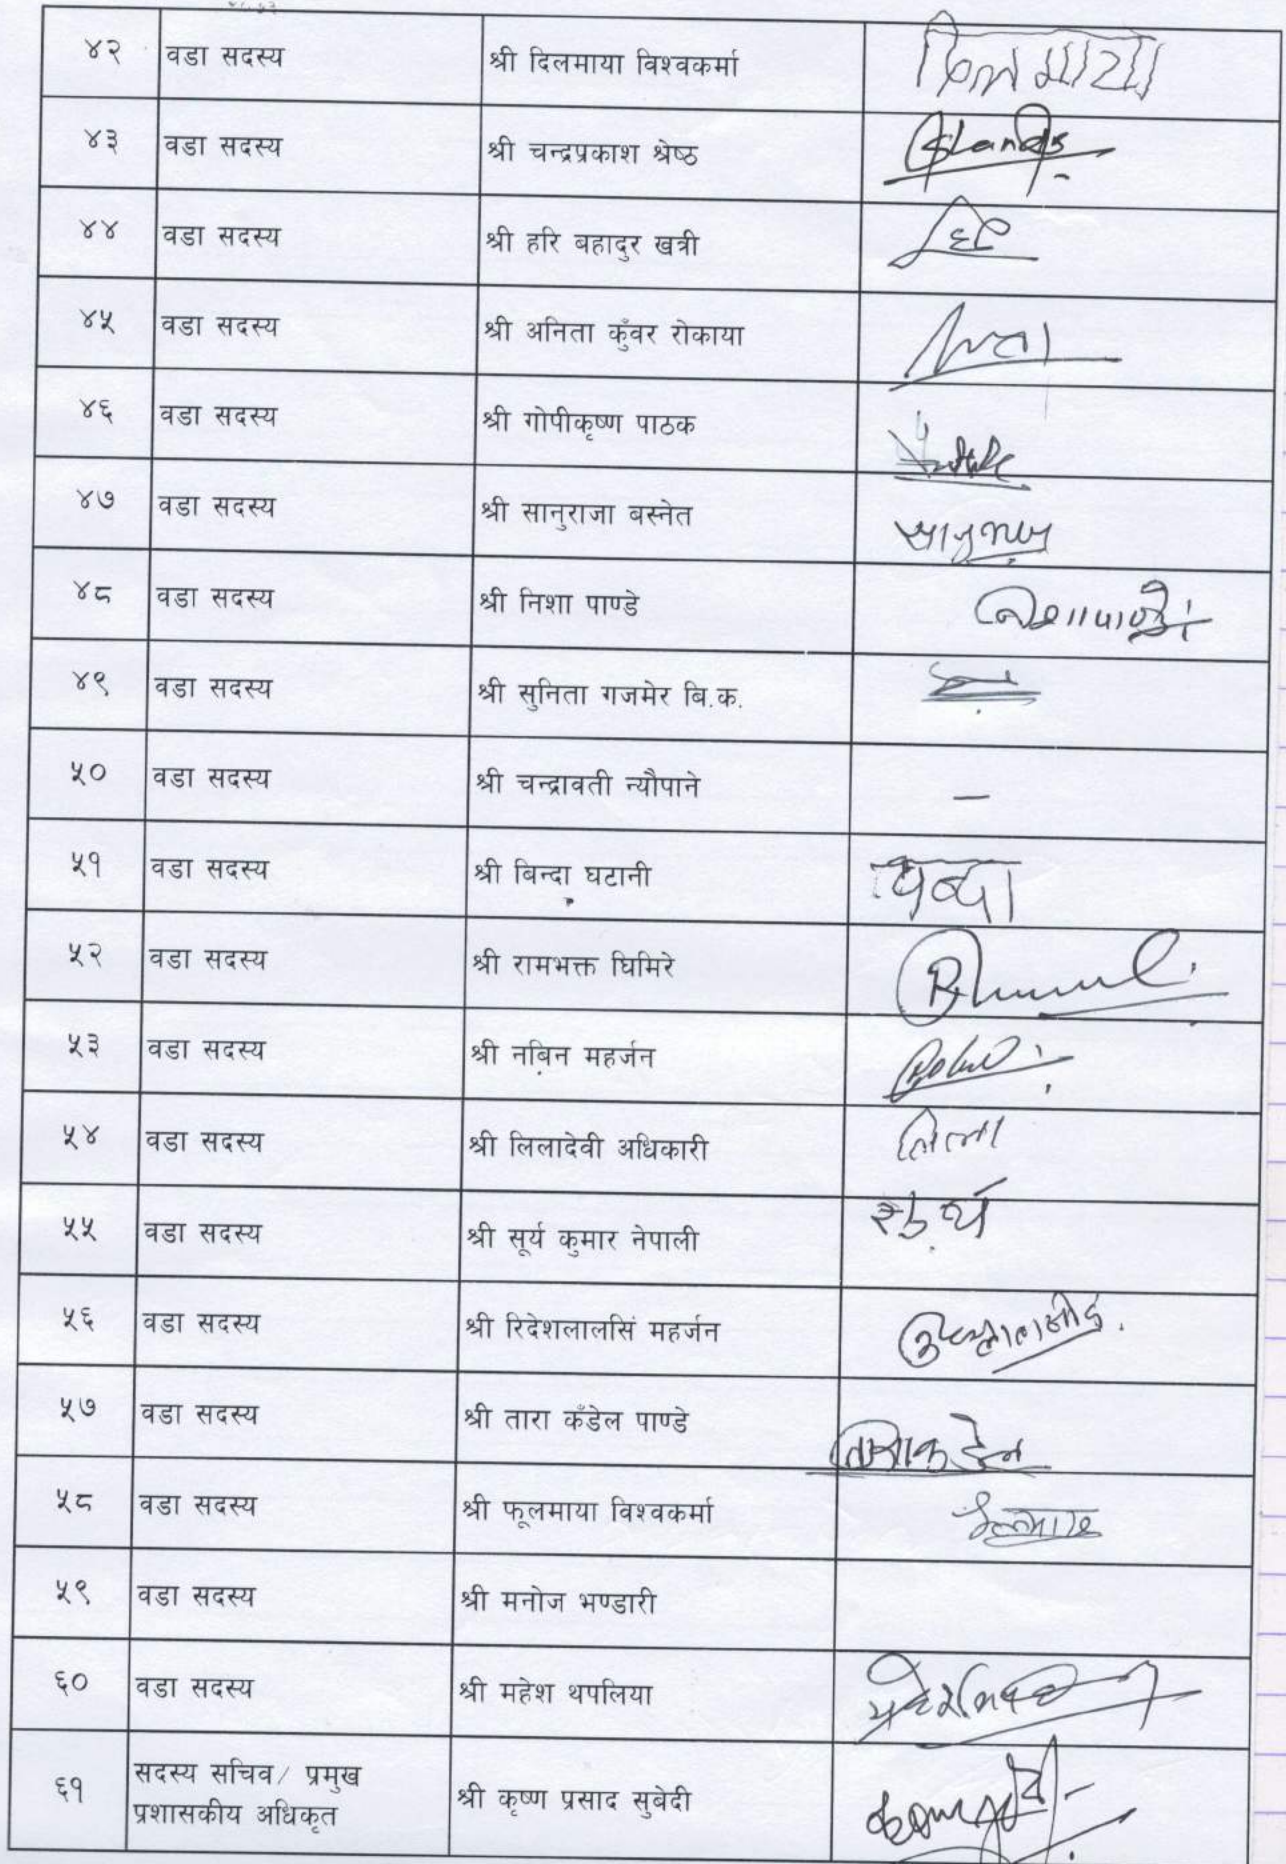 ४२ वडा सदस्य श्री दिलमाया विश्वकर्मा दिलमाया
४३ वडा सदस्य श्री चन्द्रप्रकाश श्रेष्ठ
४४ वडा सदस्य श्री हरि बहादुर खत्री
४५ वडा सदस्य श्री अनिता कुँवर रोकाया
४६ वडा सदस्य श्री गोपीकृष्ण पाठक
४७ वडा सदस्य श्री सानुराजा बस्नेत
४८ वडा सदस्य श्री निशा पाण्डे
४९ वडा सदस्य श्री सुनिता गजमेर बि.क.
५० वडा सदस्य श्री चन्द्रावती न्यौपाने –
५१ वडा सदस्य श्री बिन्दा घटानी
५२ वडा सदस्य श्री रामभक्त घिमिरे
५३ वडा सदस्य श्री नबिन महर्जन
५४ वडा सदस्य श्री लिलादेवी अधिकारी लिला
५५ वडा सदस्य श्री सूर्य कुमार नेपाली
५६ वडा सदस्य श्री रिदेशलालसिं महर्जन
५७ वडा सदस्य श्री तारा कँडेल पाण्डे
५८ वडा सदस्य श्री फूलमाया विश्वकर्मा
५९ वडा सदस्य श्री मनोज भण्डारी
६० वडा सदस्य श्री महेश थपलिया
६१ सदस्य सचिव/ प्रमुख
प्रशासकीय अधिकृत श्री कृष्ण प्रसाद सुबेदी